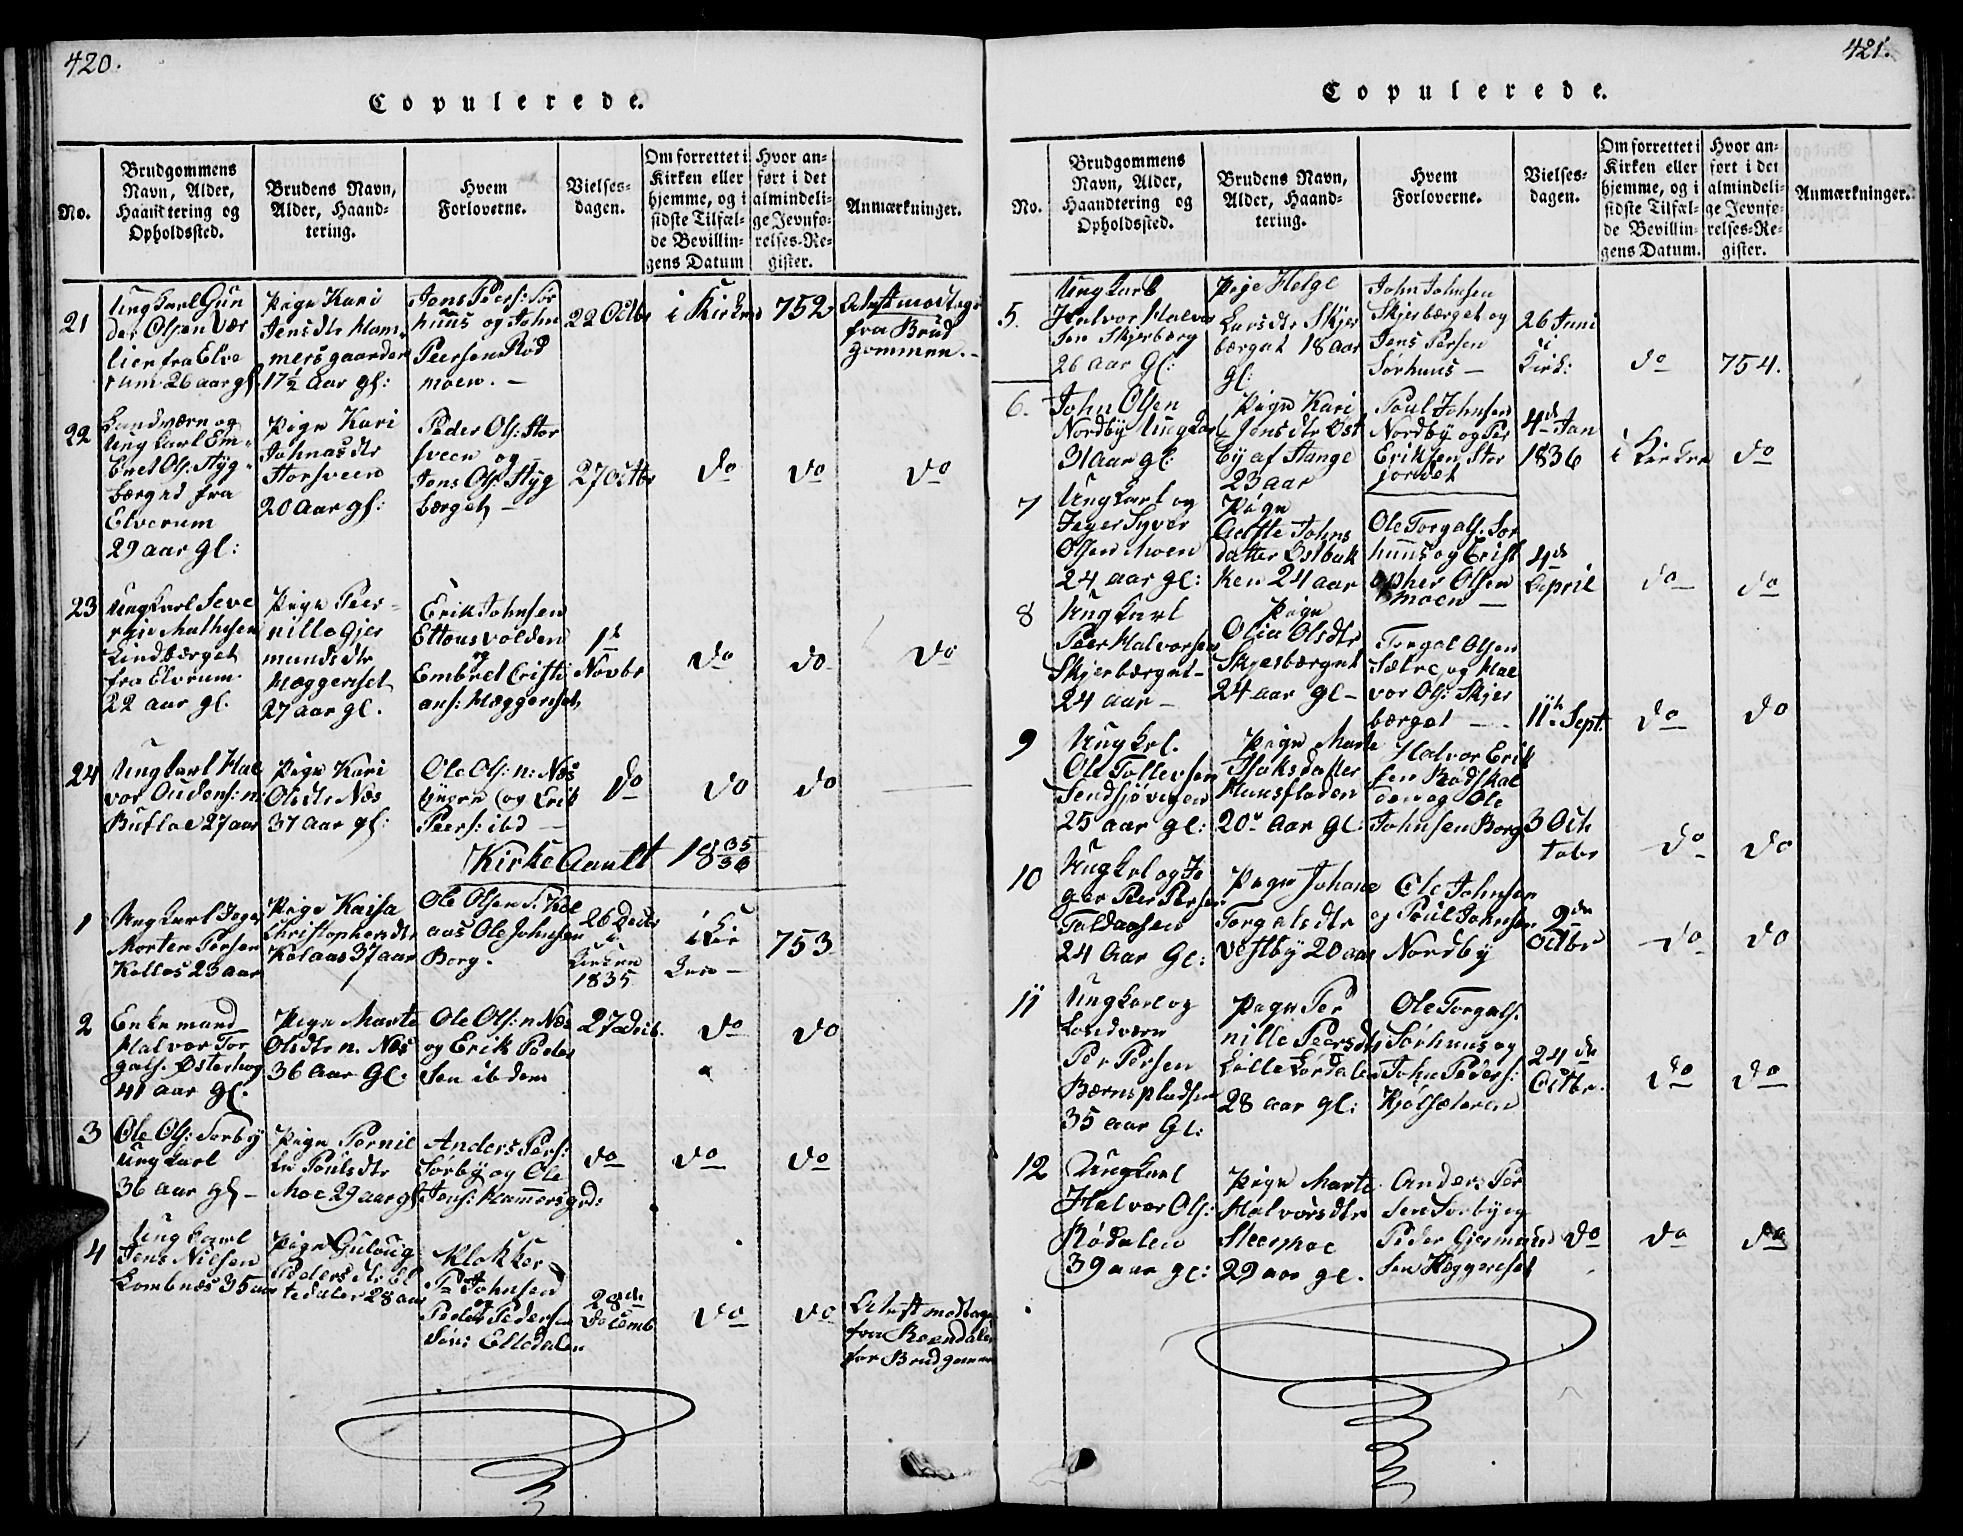 420.
Copulerede.
No.
Brudgommens
Navn, Alder,
Haandtering og
Opholdssted.
Brudens Navn,
Alder, Haand-
tering.
Hvem
Forloverne.
Vielses-
dagen.
Om forrettet i
Kirken eller
hjemme, og i
sidste Tilfæl-
de Bevillin-
gens Datum
Hvor an-
ført i det
almindeli-
ge Jevnfø-
relses-Re-
gister.
Anmærkninger.
21
Ungkarl Gun
der Olsen Vær
lien fra Elve
rum 26 aar gl.
Pige Kari
Jensdtr Ham
mersgaarden
17½ Aar gl:
Jens Peers: Sør
huus og John
Peersen Rød
moen. —
22 Octbr
i Kirken
752
Attest modtaget
fra Brud
gommen. -
22
Landværn og
Ungkarl Em-
bret Ols: Styg-
bærget fra
Elverum
29 aar gl:
Pige Kari
Johnsdtr
Storsveen
20 Aar gl:
Peder Ols: Stor
sveen og
Jens Ols: Styg
bærget —
27 Octbr
do
do
do
23
Ungkarl Seve
rin Mathisen
Lindbærget
fra Elverum
22 aar gl.
Pige Peer-
nille Gjer
mundsdtr
Hæggeriset
27 aar gl.
Erik Johnsen
Ettousvolden
og
Embret Cristi
ans: Hæggeriset
1de
Novbr
do
do
do
24
Ungkarl Hal
vor Oudens: n:
Bufloe 27 aar
Pige Kari
Olsdtr Næs
37 Aar gl:
Ole Ols: n: Næs
og Erik
Peers: ibd —
do
do
do
Kirke Aaret 1835/36
1
Ungkarl Jeger
Morten Persen
Kollos 23 aar
Pige Kaisa
Christophersdtr
Kolaas 37 aar
Ole Olsen S. Kol
aas Ole Johnsen
Borg.
26 Decbr
i
Kirken
1835
i Kir
ken —
753
2
Enkemand
Halvor Tor
gals. Østerhog
41 aar gl.
Pige Marte
Olsdtr n. Næs
36 Aar Gl.
Ole Ols: n Næs
og Erik Peder
sen ibdem
27 Decb.
do
do
3
Ole Ols: Sorby
Ungkarl
36 aar gl —
Pige Pernil
le Poulsdtr
Moe 29 aar gl
Anders Pers:
Sørby og Ole
Jens: Hammersgrd:
do
do
do
4
Ungkarl
Jens Nilsen
Lombnæs 35 aar
Pige Guloug
Pedersdtr El
tedalen 28 aar
Klokker
P. Johnsen
og
Peder Pedersen
Elledalen
28de
Decemb
do
do
Attest modtaget
fra Reendalen
for Brudgommen
421.
Copulerede.
No.
Brudgommens
Navn, Alder,
Haandtering og
Opholdssted.
Brudens Navn,
Alder, Haand-
tering.
Hvem
Forloverne.
Vielses-
dagen.
Om forrettet i
Kirken eller
hjemme, og i
sidste Tilfæl-
de Bevillin-
gens Datum.
Hvor an-
ført i det
almindeli-
ge Jevnfø-
relses-Re-
gister.
Anmærkninger.
5.
Ungkarl
Halvor Halvor
sen Skjerberg
26 aar Gl:
Pige Helge
Larsdtr Skjer
bærget 18 aar
gl:
John Johnsen
Skjerbærget og
Jens Persen
Sørhuus —
26 Juni
i
Kirk:
do
754.
6.
John Olsen
Nordby Ungkar
31 Aar gl:
Pige Kari
Jensdtr Øst
by af Stange
23 aar
Poul Johnsen
Nordby og Per
Eriksen Stor
jordet
4de Jan
1836
i Kirken
do
7
Ungkarl og
Jeger Syver
Olsen Moen
24 aar gl:
Pige
Aaste Johns
datter Østbak
ken 24 aar
Ole Torgals: Sør
huus og Crist
opher Olsen
Moen —
4de
April
do
do
8
Ungkarl
Peer Halvorsen
Skjerbærget
24 aar —
Pige
Olia Olsdtr
Skjerbærget
24 aar gl —
Torgal Olsen
Sætre og Hal
vor Ols: Skjer
bærget —
11te Sept.
do
do
9
Ungkrl.
Ole Tollevsen
Sendsjøveren
25 aar gl:
Pige Marte
Isaksdatter
Huusfloden
20 Aar Gl:
Halvor Erik
sen Rødskal
den og Ole
Johnsen Borg
3 Oct
tobr
do
do
10
Ungkrl og Je
ger Per Persen
Foldaasen
24 Aar Gl:
Pige Johane
Torgalsdtr
Vestby 20 aar
Ole Johnsen
og Poul Johnsen
Nordby
9de
Octbr
do
do
11
Ungkarl og
Landværn
Per Persen
Bærnspladsen
35 aar Gl:
Pige Per
nille Peersdtr
Lille Lørdalen
28 aar gl:
Ole Torgals.
Sørhuus og
John Peders:
Kjølsæteren
24de
Octbr.
do
do
12
Ungkarl
Halvor Ols:
Rødalen
39 aar gl:
Pige Marte
Halvorsdtr
Steermoe
29 aar gl.
Anders Per
sen Sorby og
Peder Gjermund
sen Hæggeriset
do
do
do